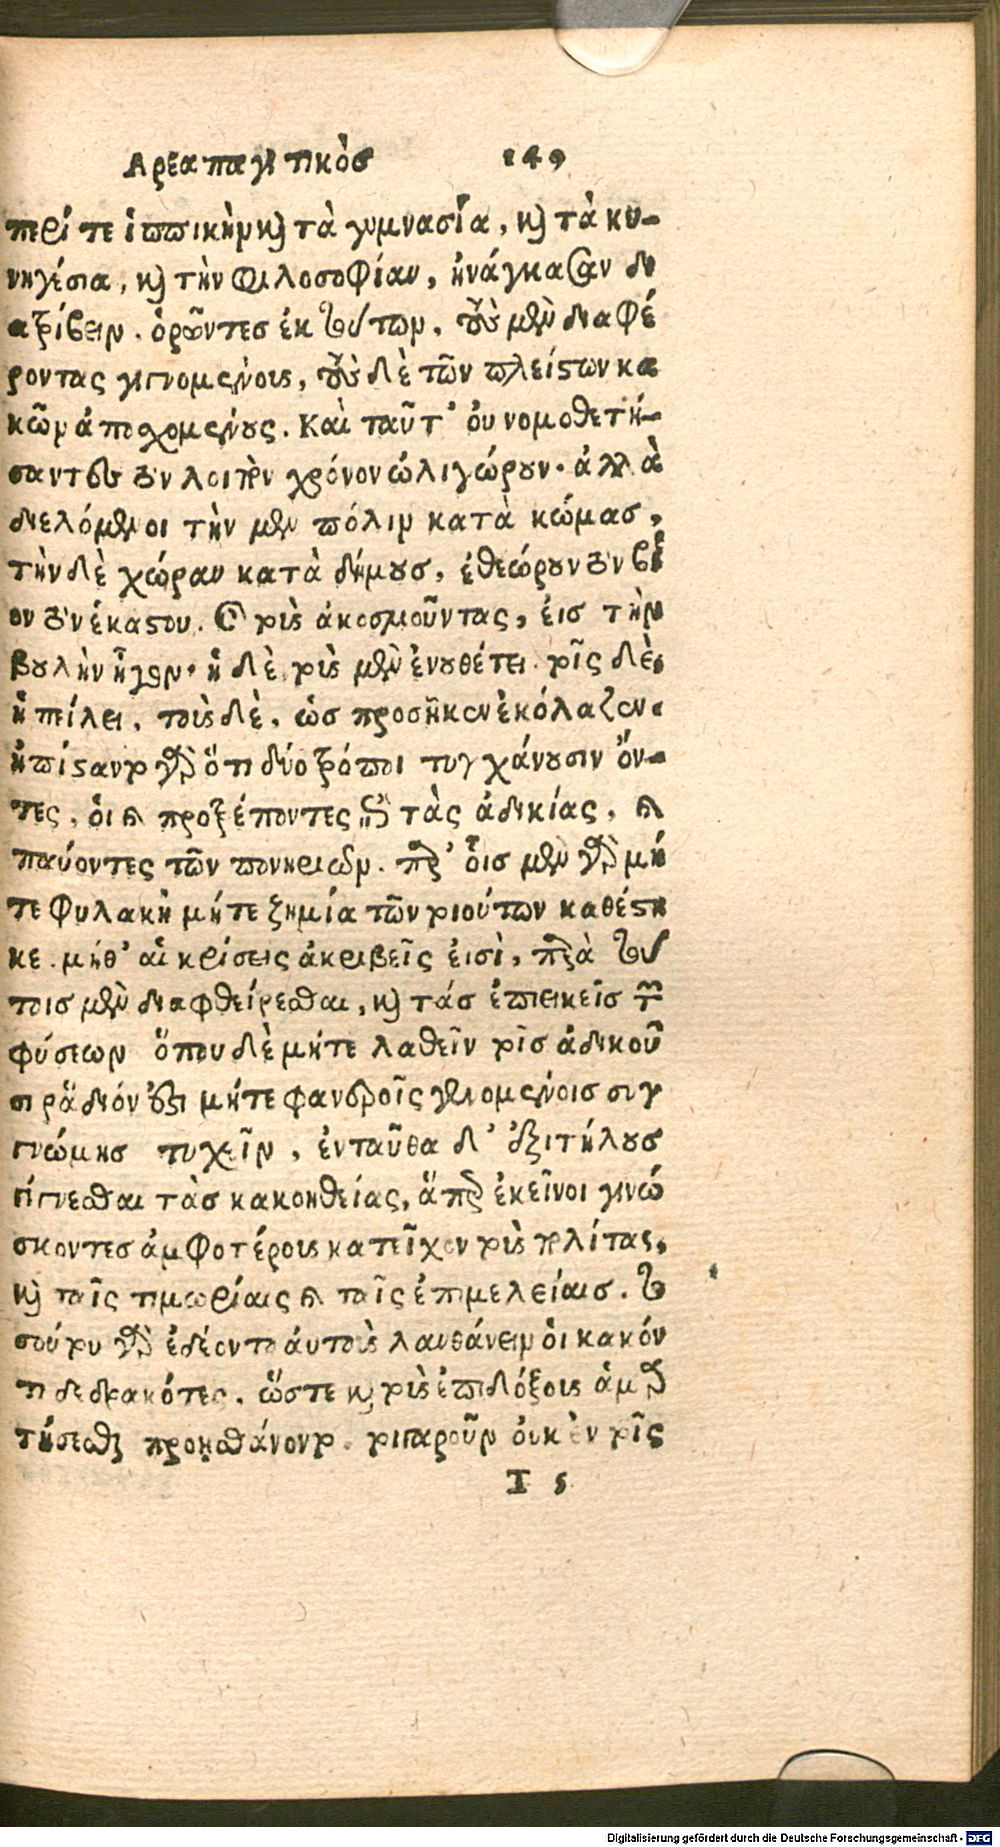 Αρεοπαγιτικὸσ 149
περί τε ἱππικὴν καὶ τὰ γυμνασία, καὶ τὰ κυ-
νηγέσια, καὶ τὴν φιλοσοφίαν, ἠνάγκασαν δι
ατρίβειν. ὁρῶντεσ ἐκ τούτων, τοὺς μὲν διαφέ
ροντας γιγνομένους, τοὺς δὲ τῶν πλείστων κα
κῶν ἀπεχομένους. Καὶ ταῦτ' ὀυ νομοθετή-
σαντες τὸν λοιπὸν χρόνον ὠλιγώρουν. ἀλλὰ
διελόμενοι τὴν μὲν πόλιν κατὰ κώμασ,
τὴν δὲ χώραν κατὰ δήμουσ, ἐθεώρουν τὸν βί
ον τὸν ἑκάστου. καὶ τοὺς ἀκοσμοῦντας, ἐισ τὴν
βουλὴν ἦγον. ἡ δὲ τοὺς μὲν ἐνουθέτει. τοῖς δὲ
ἠπείλει, τοὺς δὲ, ὡσ προσῆκον ἐκόλαζον.
ἠπίσαντο γὰρ ὅτι δύο τρόποι τυγχάνουσιν ὄν-
τες, ὁι καὶ προτρέποντες ἐπὶ τὰς ἀδικίας, καὶ
παύοντες τῶν πονηριῶν. παρ' οἷσ μὲν γὰρ μή
τε φυλακὴ μήτε ζημία τῶν τοιούτων καθέστη
κε. μήθ' αἱ κρίσεις ἀκριβεῖς ἐισὶ, παρὰ τού
τοισ μὲν διαφθείρεσθαι, καὶ τάσ ἐπιεικεῖσ τῶν
φύσεων ὅπου δὲ μήτε λαθεῖν τοῖσ ἀδικοῦ
σι ῥᾴδιόν ἐστι μήτε φανεροῖς γενομένοισ συγ
γνώμησ τυχεῖν, ἐνταῦθα δ' ἐξιτήλουσ
γίγνεσθαι τὰσ κακοηθείας, ἅπερ ἐκεῖνοι γινώ
σκοντεσ ἀμφοτέροις κατεῖχον τοὺς πολίτας,
καὶ ταῖς τιμωρίαις καὶ ταῖς ἐπιμελείαισ. το
σούτου γὰρ ἐδέοντο ἀυτοὺς λανθάνειν ὁι κακόν
τι δεδρακότες, ὥστε καὶ τοὺς ἐπιδόξους ἁμαρ
τήσεσθαι προῃσθάνοντο. τοιγαροῦν ὀυκ ἐν τοῖς
T 5
Digitalisierung gefördert durch die Deutsche Forschungsgemeinschaft - DFG